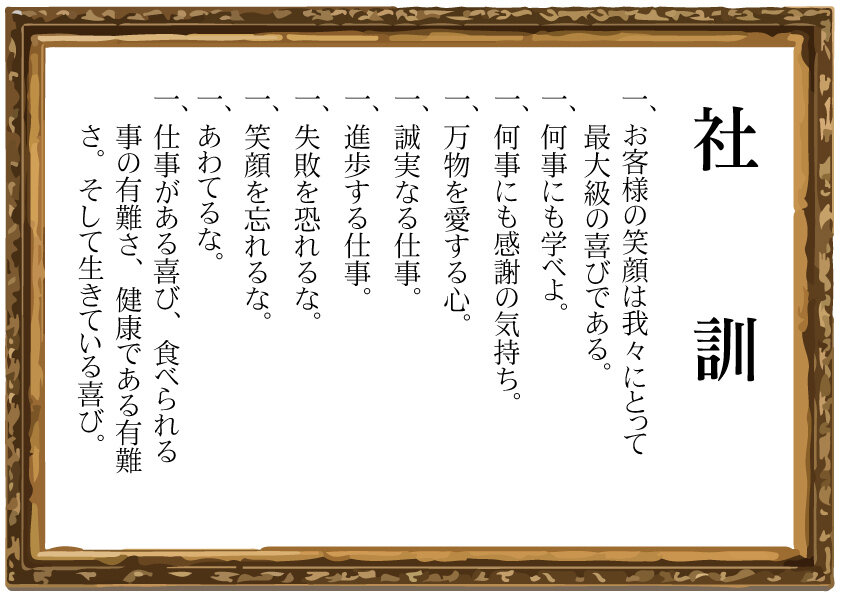 社訓
一、お客様の笑顔は我々にとって
最大級の喜びである。
一、何事にも学べよ。
一、何事にも感謝の気持ち。
一、万物を愛する心。
一、誠実なる仕事。
一、進歩する仕事。
一、失敗を恐れるな。
一、笑顔を忘れるな。
一、あわてるな。
一、仕事がある喜び、食べられる
事の有難さ、健康である有難
さ。そして生きている喜び。